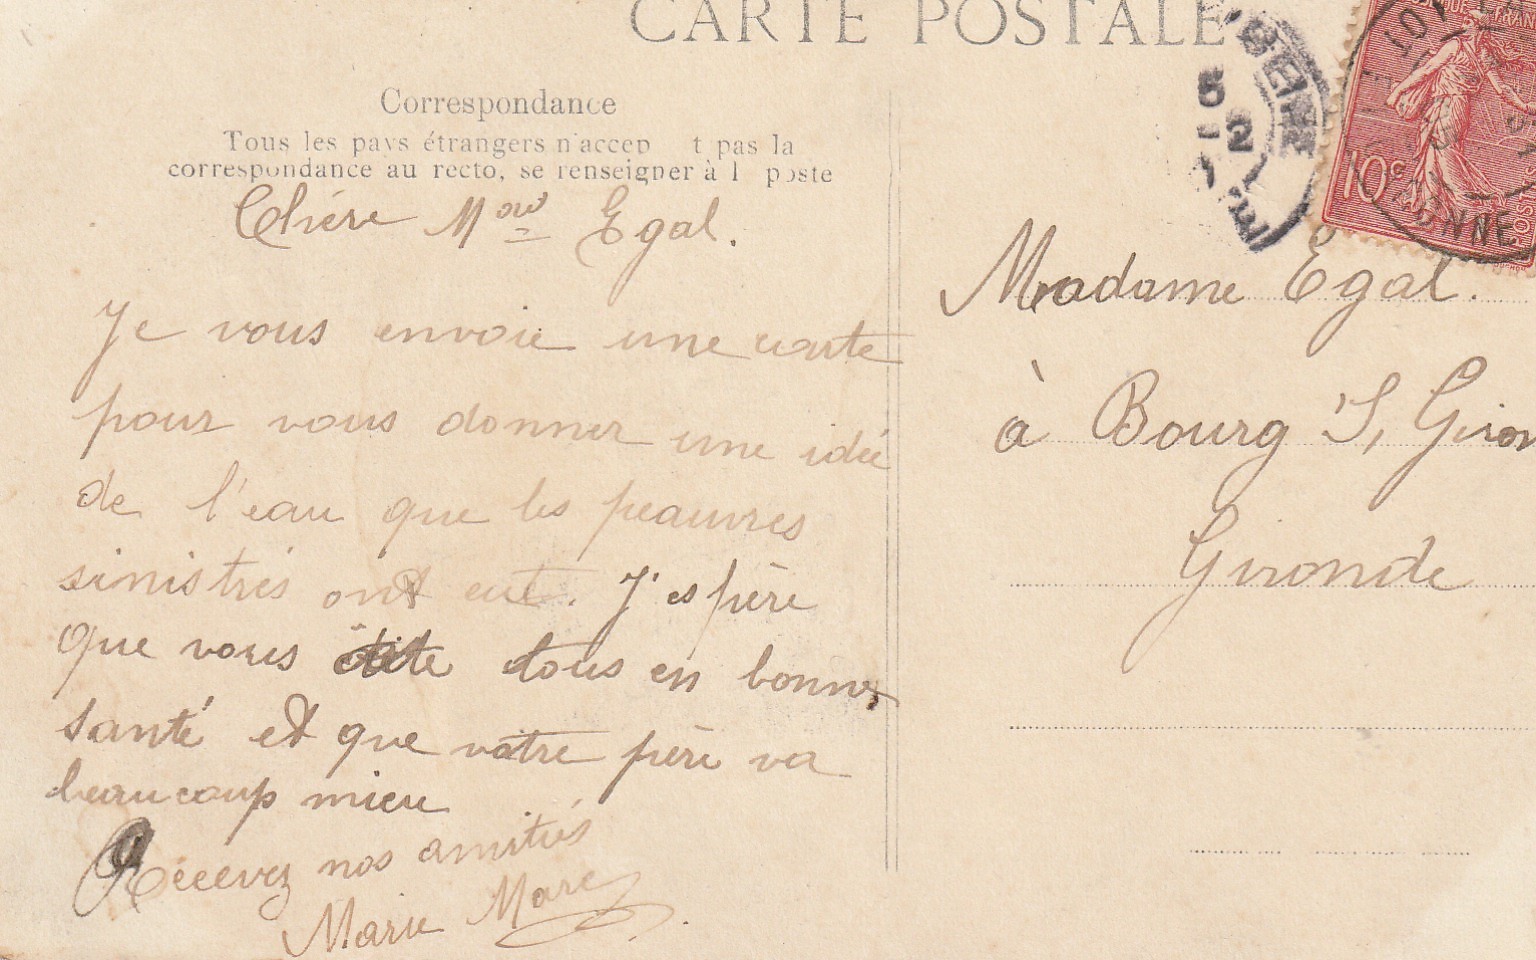 CARTE POSTALE
Correspondance
Tous les pays étrangers n'accep t pas la
correspondance au recto, se renseigner à l poste
Chère Mme Egal.
Je vous envoie une carte
pour vous donner une idée
de l'eau que les peauvres
sinistrés ont eut. J'espère
que vous ête tous en bonne
santé et que votre père va
beaucoup mieu
Recevez nos amitiés
Marie Marc
5
2
10c
Madame Egal.
à Bourg S, Giron
Gironde